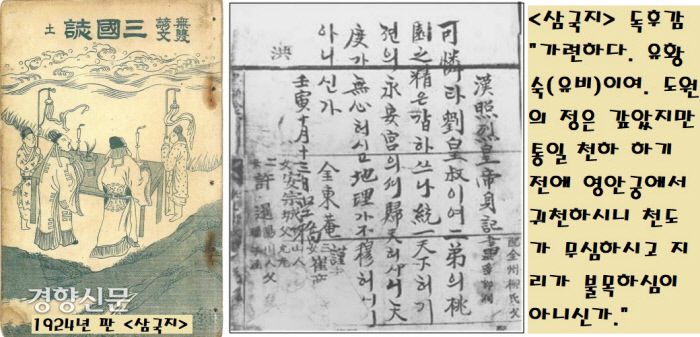 無雙
諺文
三國誌
上
경향신문
1924년 판 <삼국지>
漢昭烈皇帝身記
可憐라劉皇叔이어二弟의桃
園之精은갑하쓰나統一天下허기
젼의永安宮의셔歸天허시니天
度가無心허심地理가不穆허시
아니신가
壬寅十月十三日
金東菴
配全州柳氏父
<삼국지> 독후감
"가련하다. 유황
숙(유비)이여. 도원
의 정은 갚았지만
통일 천하 하기
전에 영안궁에서
귀천하시니 천도
가 무심하시고 지
리가 불목하심이
아니신가."